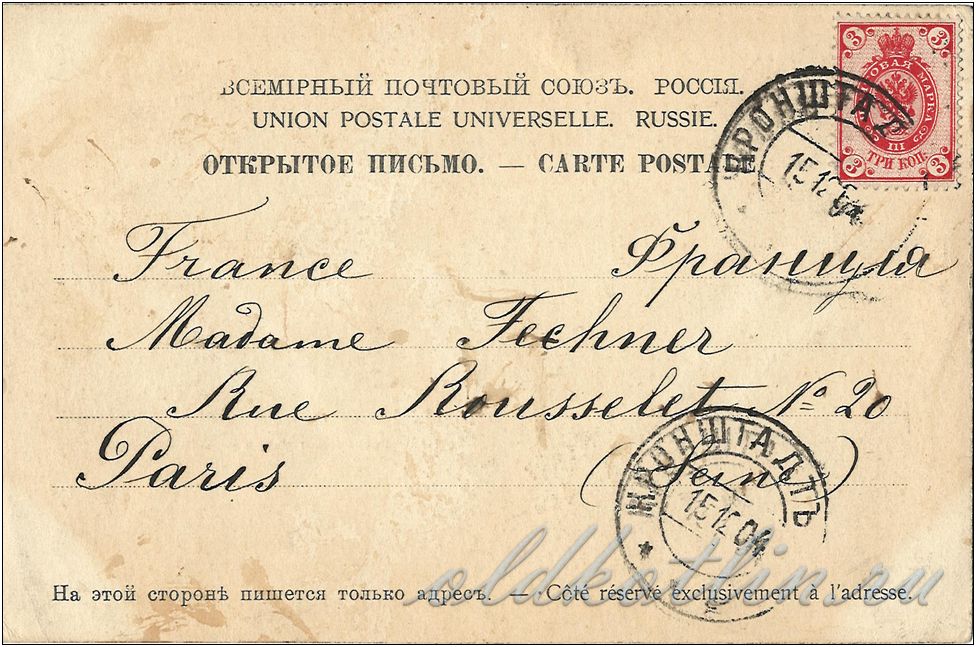 ВСЕМІРНЫЙ ПОЧТОВЫЙ СОЮЗЪ. РОССІЯ.
UNION POSTALE UNIVERSELLE. RUSSIE.
ОТКРЫТОЕ ПИСЬМО. — CARTE POSTALE
3 3
ПОЧТОВАЯ МАРКА
III
3 3
ТРИ КОП.
КРОНШТАД
15 12 04
France Франция
Madame Fechner
Rue Rousselet № 20
Paris (Seine)
КРОНШТАДТЪ
15 12 04
На этой сторонѣ пишется только адресъ. — Côté réservé exclusivement à l'adresse.
oldkotlin.ru